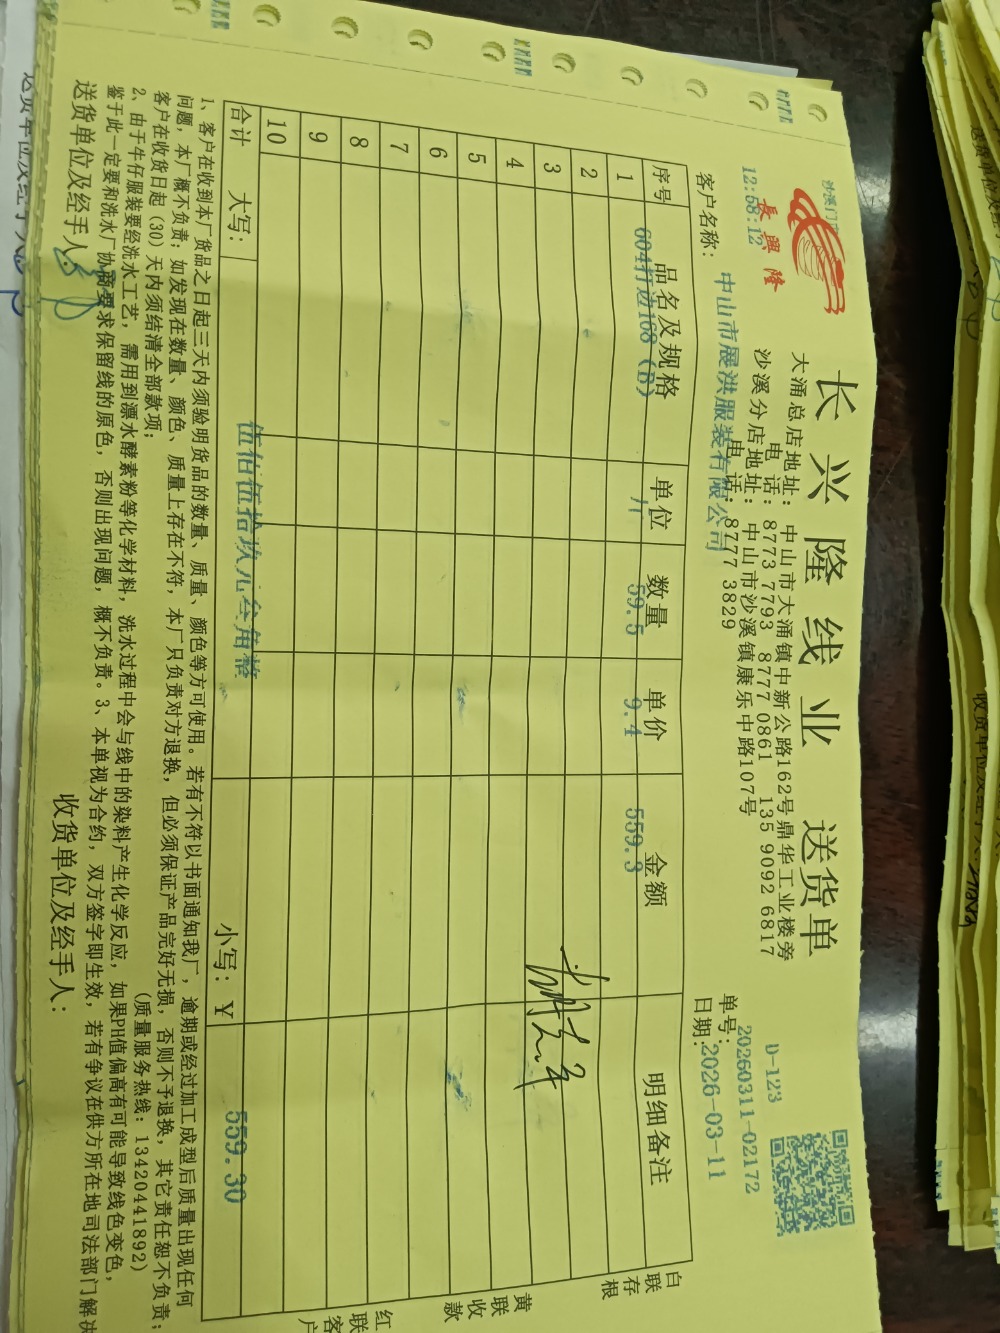 长兴隆线业 送货单
沙溪门
12:58:12
長興隆
大涌总店地址：中山市大涌镇中新公路162号鼎华工业楼旁
电话：8773 7793 8777 0861 135 9092 6817
沙溪分店地址：中山市沙溪镇康乐中路107号
电话：8777 3829
D-123
单号：20260311-02172
客户名称：中山市展洪服装有限公司
日期：2026-03-11
序号 品名及规格 单位 数量 单价 金额 明细备注
1 604打边168（B） 斤 59.5 9.4 559.3
2
3
4
5
6
7
8
9
10
合计 大写：伍佰伍拾玖元叁角整 小写：¥ 559.30
白联存根
黄联收款
红联客户
1、客户在收到本厂货品之日起三天内须验明货品的数量、质量、颜色等方可使用。若有不符以书面通知我厂，逾期或经过加工成型后质量出现任何
问题，本厂概不负责；如发现在数量、颜色、质量上存在不符，本厂只负责对方退换，但必须保证产品完好无损，否则不予退换，其它责任恕不负责；
客户在收货日起（30）天内须结清全部款项；
(质量服务热线：13420441892)
2、由于牛仔服装要经洗水工艺，需用到漂水酵素粉等化学材料，洗水过程中会与线中的染料产生化学反应，如果PH值偏高有可能导致线色变色，
鉴于此一定要和洗水厂协商要求保留线的原色，否则出现问题，概不负责。3、本单视为合约，双方签字即生效，若有争议在供方所在地司法部门解决
送货单位及经手人：
收货单位及经手人：